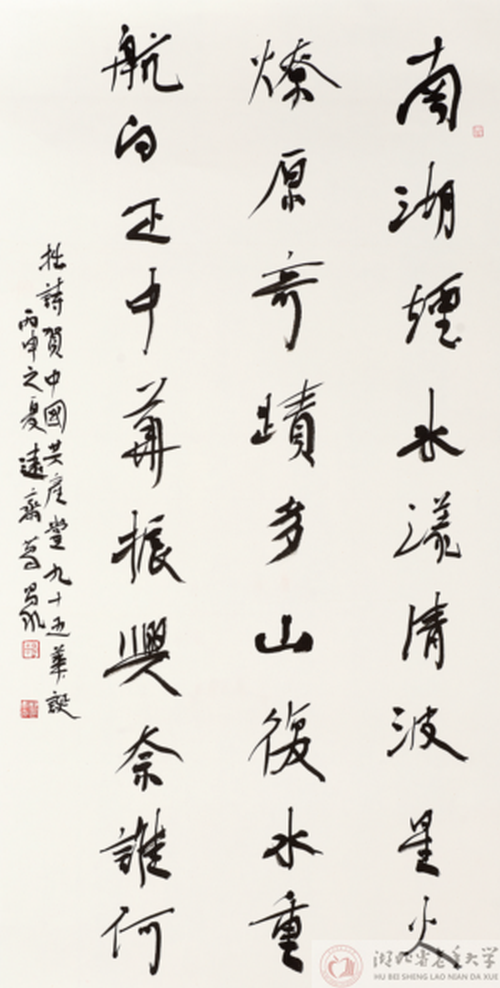 南湖煙水漾清波星火
燎原奇蹟多山復水重
航向正中華振興奈誰何
拙詩賀中國共產黨九十五華誕
丙申之夏遠齋葛昌永
湖北省老年大学
HU BEI SHENG LAO NIAN DA XUE